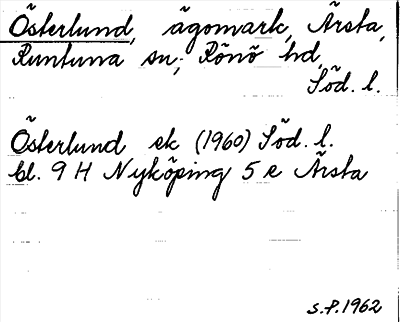 Österlund, ägomark, Ärsta,
Runtuna sn, Rönö hd,
Söd. l.
Österlund ek (1960) Söd. l.
bl. 9 H Nyköping 5 e Ärsta
S.P. 1962